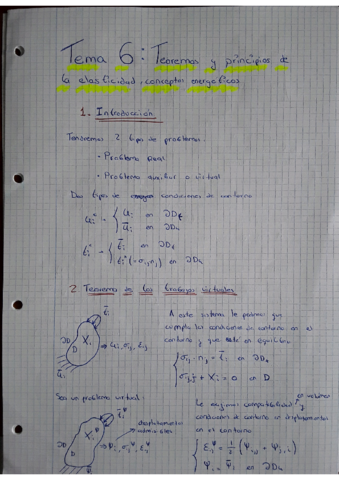 Tema 6: Teoremas y principios de
la elasticidad, conceptos energéticos
1. Introducción
Tendremos 2 tipos de problema:
• Problema real
• Problema auxiliar o virtual
Dos tipos de condiciones de contorno
uᵢ* = { uᵢ en ∂Dₜ
ūᵢ en ∂Dᵤ
tᵢ* = { t̄ᵢ en ∂Dₜ
tᵢ* (= σᵢⱼnⱼ) en ∂Dᵤ
2 Teorema de los trabajos virtuales
t̄ᵢ
∂D
Xᵢ
D
→ uᵢ, σᵢⱼ, εᵢⱼ
t̄ᵢ
A este sistema le pedimos que
cumpla las condiciones de contorno en el
contorno y que esté en equilibrio
{ σᵢⱼ · nⱼ = t̄ᵢ en ∂Dₜ
σᵢⱼ,ⱼ + Xᵢ = 0 en D
Sea un problema virtual:
desplazamientos
admisibles
∂D
D
Le exigimos compatibilidad en volumen y
condiciones de contorno en desplazamientos
en el contorno